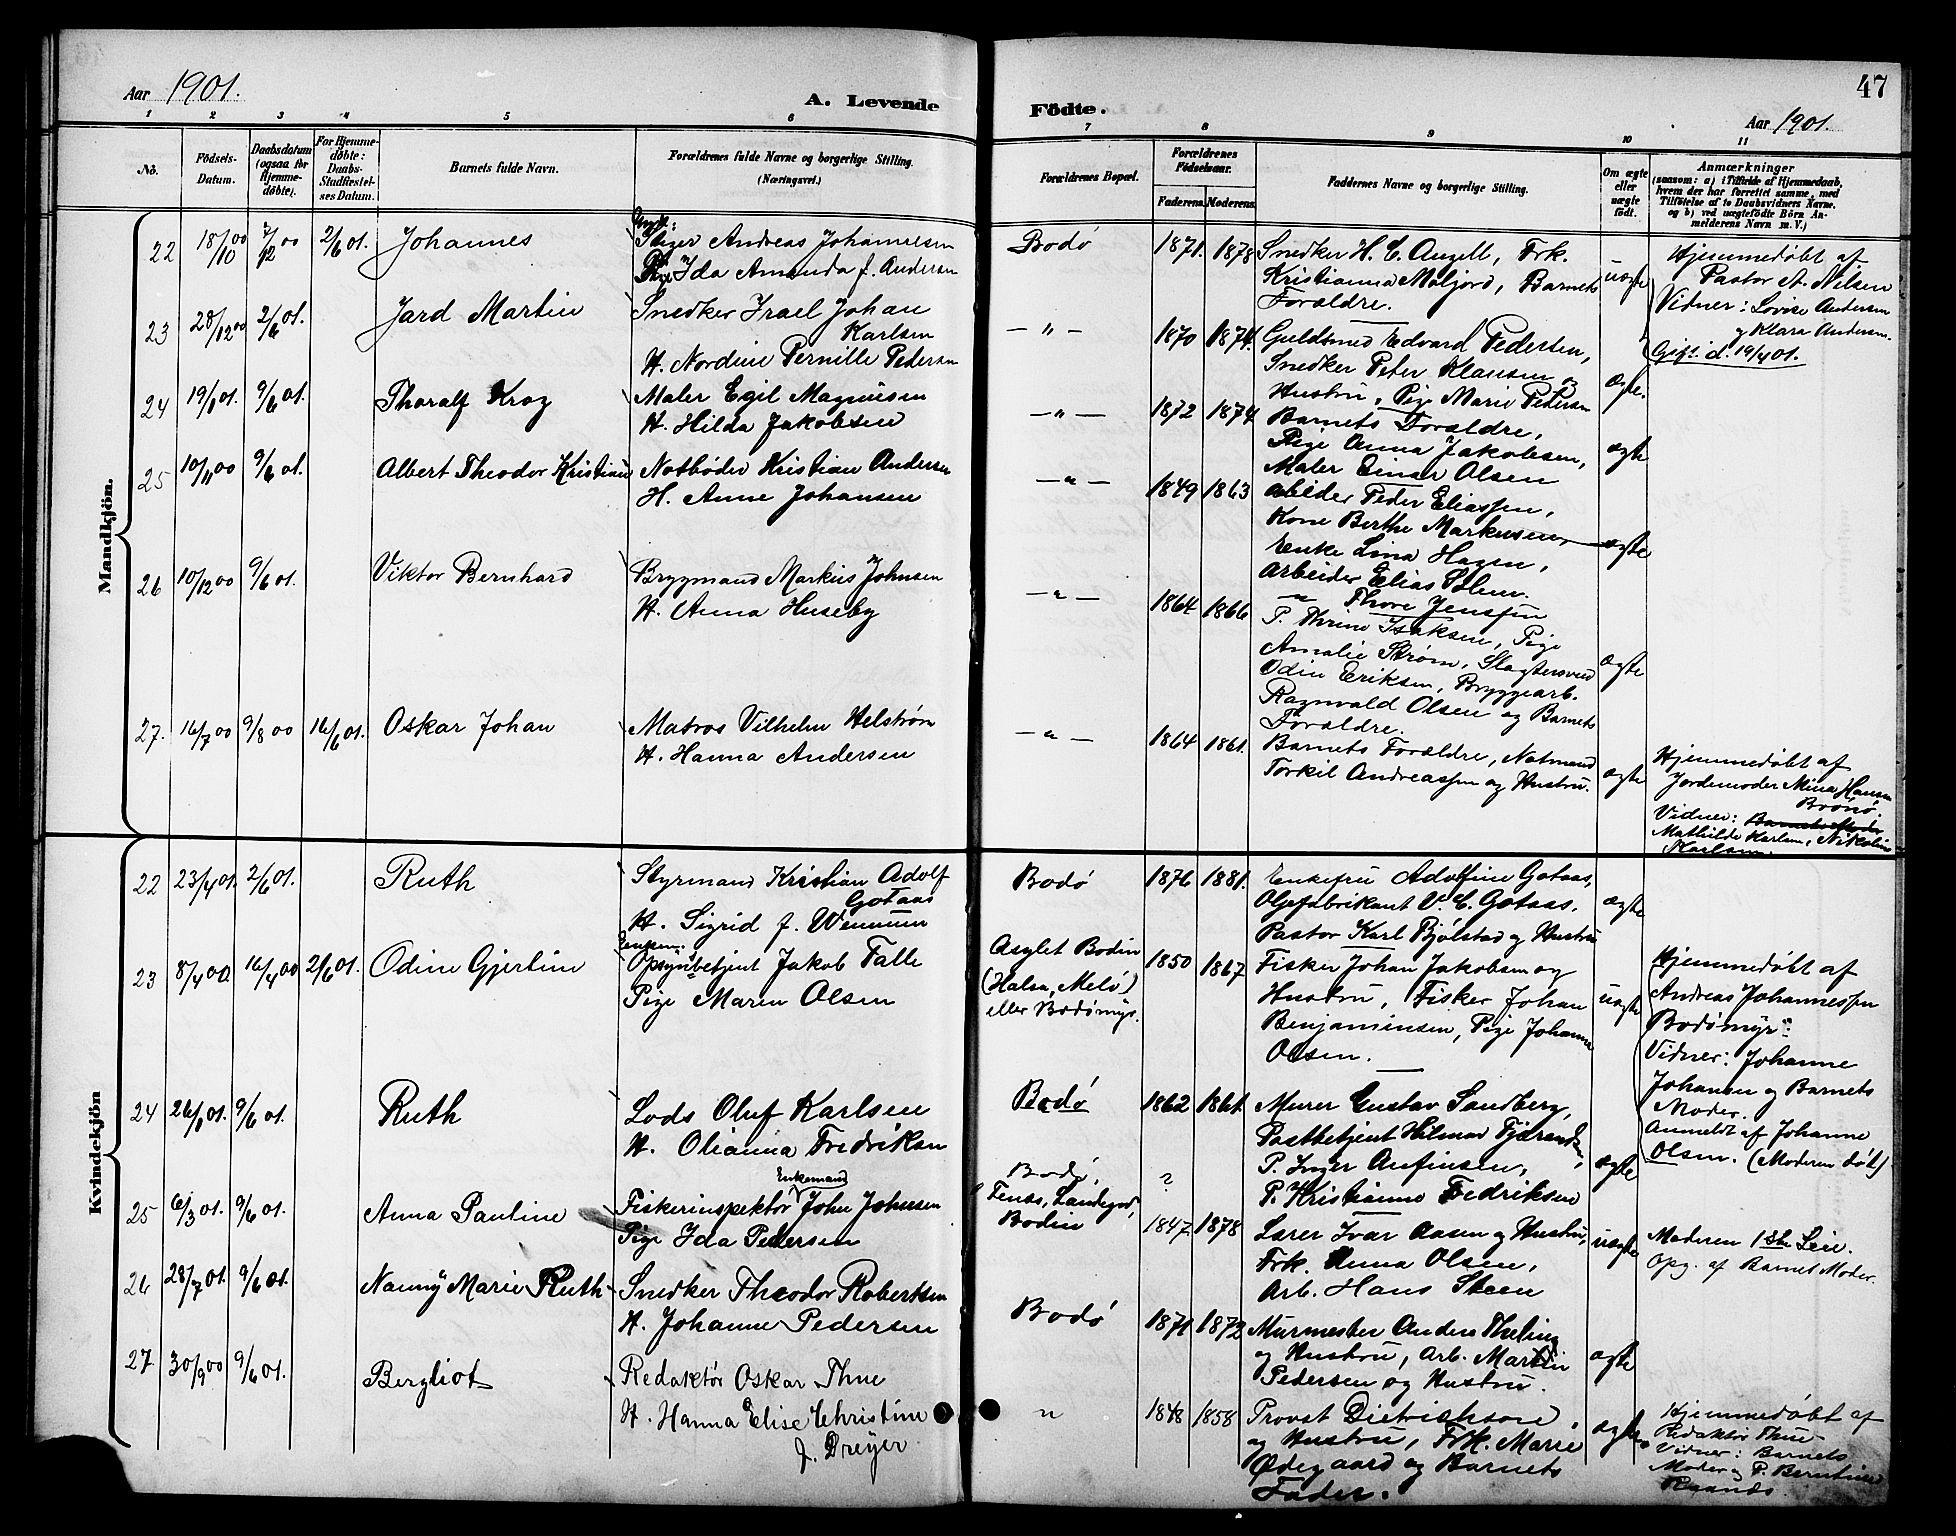 47
Aar 1901.
A. Levende
Födte.
Aar 1901.
1 2 3 4 5 6 7 8 9 10 11
No.
Födsels-Datum.
Daabsdatum (ogsaa for Hjemme-døbte).
For Hjemme-døbte: Daabs-Stadfæstel-ses Datum.
Barnets fulde Navn.
Forældrenes fulde Navne og borgerlige Stilling.
(Næringsvei.)
Forældrenes Bopæl.
Forældrenes Födselsaar.
Faderens. Moderens.
Faddernes Navne og borgerlige Stilling.
Om ægte eller uægte födt.
Anmærkninger
(saasom: a) i Tilfælde af Hjemmedaab, hvem der har forrettet samme, med Tilföielse af to Daabsvidners Navne, og b) ved uægtefödte Börn An-melderens Navn m. V.)
Mandkjön.
22 18/10 00 2/12 00 2/6 01. Johannes
Andreas Johannesen
Ida Amanda f. Andersen
Bodø 1871. 1878
Snedker H. C. Angell, Frk.
Kristianna Måljord, Barnets
Forældre.
uægte
Hjemmedøbt af
Pastor A. Nilsen
Vidner: Lovise Andersen
og Klara Andersen.
Gift d. 19/4 01.
23 28/12 00 2/6 01. Jard Martin
Snedker Israel Johan
Karlsen
H. Nordine Pernille Pedersen
— " — 1870 1874.
Guldsmed Edvard Pedersen,
Snedker Peter Klausen og
Hustru, Pige Marie Pedersen
ægte.
24 19/1 01. 9/6 01. Thoralf Krog
Maler Egil Magnusen
H. Hilda Jakobsen
— " — 1872 1874
Barnets Forældre,
Pige Anna Jakobsen,
Maler Einar Olsen
ægte
25 10/11 00 9/6 01. Albert Theodor Kristian
Notbøder Kristian Andersen
H. Anne Johansen
— " — 1849 1863
Arbeider Peder Eliassen,
Kone Berthe Markusen,
Enke Lina Hagen,
Arbeider Elias Olsen.
ægte
26 10/12 00 9/6 01. Viktor Bernhard
Brygmand Markus Johnsen
H. Anna Huseby
— " — 1864 1866
" Thore Jenssen
P. Thrine Isaksen, Pige
Amalie Strøm, Slagtersvend
Odin Eriksen, Bryggearb.
Ragnvald Olsen og Barnets
Forældre.
ægte
27. 16/7 00 9/8 00 16/6 01. Oskar Johan
Matros Vilhelm Helstrøm
H. Hanna Andersen
— " — 1864 1861.
Barnets Forældre, Notmand
Torkil Andreassen og Hustru.
ægte
Hjemmedøbt af
Jordemoder Mina Hansen
Brønø.
Vidner: Barnets Moder
Mathilde Karlsen, Nikoline
Karlsen.
Kvindekjön
22 23/4 01. 2/6 01. Ruth
Styrmand Kristian Adolf
Gotaas
H. Sigrid f. Wennum
Bodø 1876 1881.
Enkefru Adolfine Gotaas,
Oljefabrikant V. C. Gotaas.
Pastor Karl Bjølstad og Hustru
ægte
23 8/4 00. 16/4 00 2/6 01. Odine Gjertine
Enkem.:
Opsynsbetjent Jakob Falle
Pige Maren Olsen
Asylet Bodin
(Halsa, Melø)
eller Bodømyr.
1850 1867
Fisker Johan Jakobsen og
Hustru, Fisker Johan
Benjaminsen, Pige Johanne
Olsen.
uægte
Hjemmedøbt af
Andreas Johannessen
Bodømyr:
Vidner: Johanne
Johansen og Barnets
Moder.
Anmeldt af Johanne
Olsen. (Moderen død)
24 26/1 01. 9/6 01. Ruth
Lods Oluf Karlsen
H. Olianna Fredriksen
Bodø 1862 1861.
Murer Gustav Sandberg,
Postbetjent Hilmar
P. Inger Anfinsen,
P. Kristianne Fredriksen
ægte
25 6/3 01. 9/6 01. Anna Pauline
Enkemand
Fiskeriinspektør John Johnsen
Pige Ida Pedersen
Bodø,
? Fenes, Landegod,
Bodin
1847 1878
Lærer Ivar Aasen og Hustru,
Frk. Anna Olsen,
Arb. Hans Steen
uægte
Moderen 1ste Leie.
Opg. af Barnets Moder.
26 28/7 01. 9/6 01. Nanny Marie Ruth
Snedker Theodor Robertsen
H. Johanne Pedersen
Bodø 1871 1872
Murmester Anders Theling
og Hustru, Arb. Martin
Pedersen og Hustru.
ægte
27 30/9 00 9/6 01. Bergliot
Redaktør Oskar Thue
H. Hanna Elise Christine
f. Dreyer
" 1848 1858
Provst Dietrichson
og Hustru, Frk. Marie
Ødegaard og Barnets
Fader.
ægte
Hjemmedøbt af
Redaktør Thue
Vidner: Barnets
Moder og P. Berntine